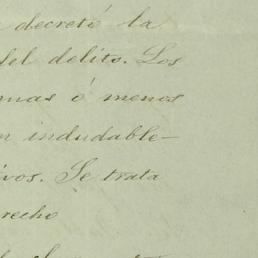 decreté la
del delito. Los
mas ó menos
indudable-
vos. Se trata
recho